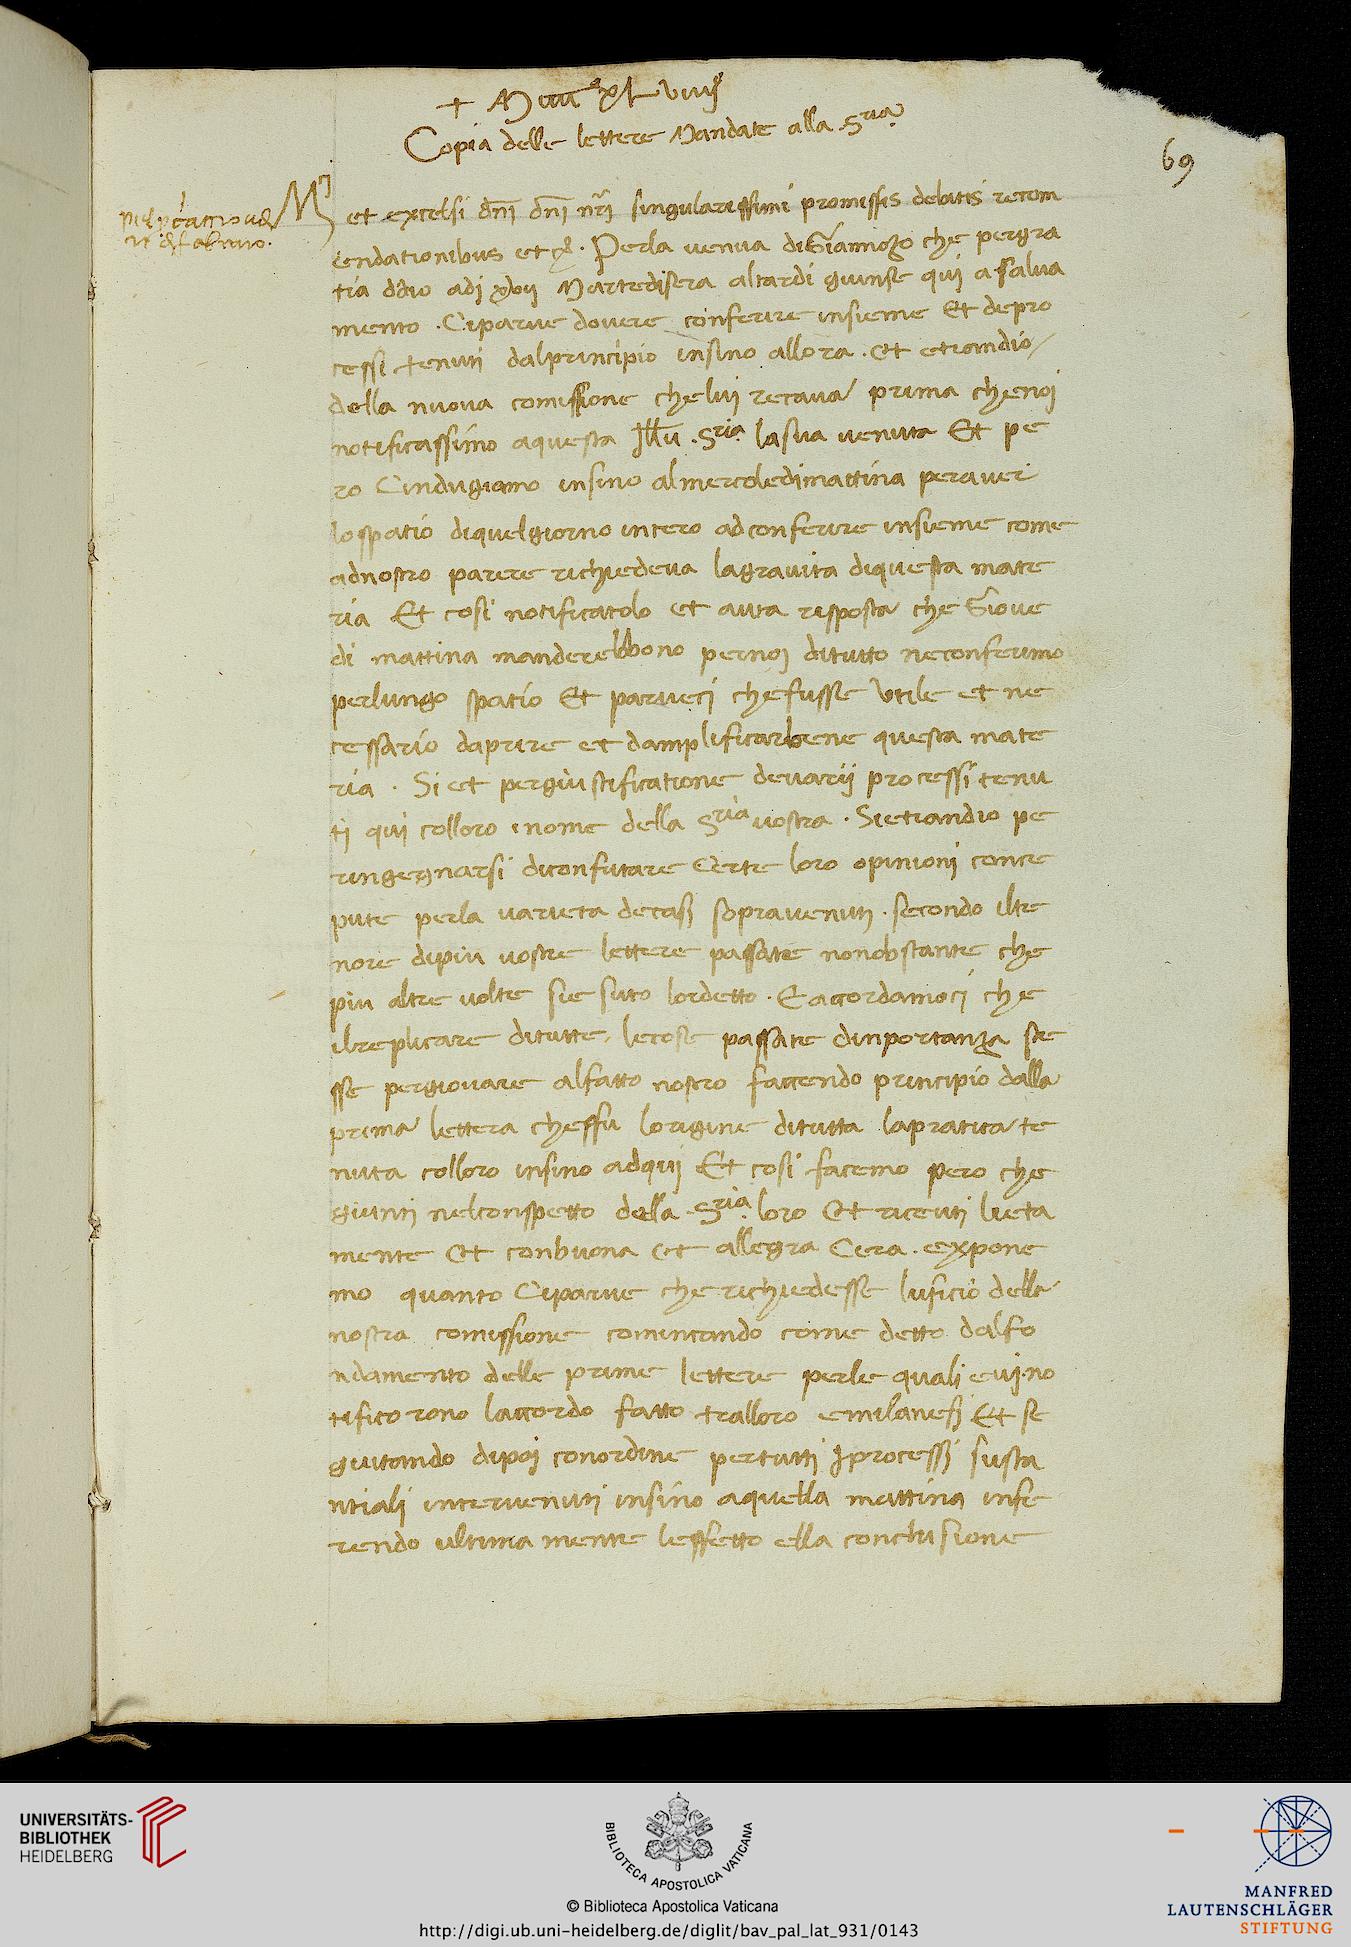 + M iiii^c xLviiij
Copia delle lettere Mandate alla S^ria.
69
M^ci et excelsi dn̄i dn̄i nr̄i singularissimi promissis debitis recom
endationibus et c̄. Perla venuta diGiannozo che pergra
tia ddio adj xvij Martedisera altardi giunse qui a salua
mento . Ciparue douere conferire insieme Et depro
cessi tenuti dalprincipio insino allora . et etiamdio
della nuova comissione chelui recaua prima chenoj
notificassimo aquesta Jllu . S^ria. lasua venuta Et pe
ro Cindugiamo insino almercoledimattina perauer
lospatio diquelgiorno intero adconferire insieme come
adnostro parere richiedeua lagrauita diquesta mate
ria Et cosi notificatolo et auta risposta che Gioue
di mattina manderebbono pernoj ditutto neconferimo
perlungo spatio Et parueci chefusse vtile et ne
cessario daprire et damplificarbene questa mate
ria . Si et pergiustificatione deuarij processi tenu
ti qui colloro inome della S^ria vostra . Sietiandio pe
ringegnarsi diconfutare Certe loro opinioni conce
pute perla varieta decasj sopravenutj . secondo ilte
nore dipiu vostre lettere passate nonobstante che
piu altre volte sie suto lordetto . Eaccordamoci che
ilreplicare ditutte lecose passate dinportanza fo
sse pergiouare alfatto nostro faccendo principio dalla
prima lettera cheffu lorigine ditutta lapratica te
nuta colloro insino adquj Et cosi facemo pero che
giunti nelconspetto della S^ria. loro Et riceuti lieta
mente Et conbuona et allegra Cera . expone
mo quanto Ciparue che richiedesse luficio della
nostra comissione cominciando come detto dalfo
ndamento delle prime lettere perle quali euj no
tificorono laccordo fatto tralloro emilanesj Et se
guitando dipoj conordine pertutti Jprocessi susta
ntiali interuenuti insino aquella mattina infe
rendo ultima mente leffetto ella conclusione
UNIVERSITÄTS-
BIBLIOTHEK
HEIDELBERG
BIBLIOTECA APOSTOLICA VATICANA
© Biblioteca Apostolica Vaticana
http://digi.ub.uni-heidelberg.de/diglit/bav_pal_lat_931/0143
MANFRED
LAUTENSCHLÄGER
STIFTUNG